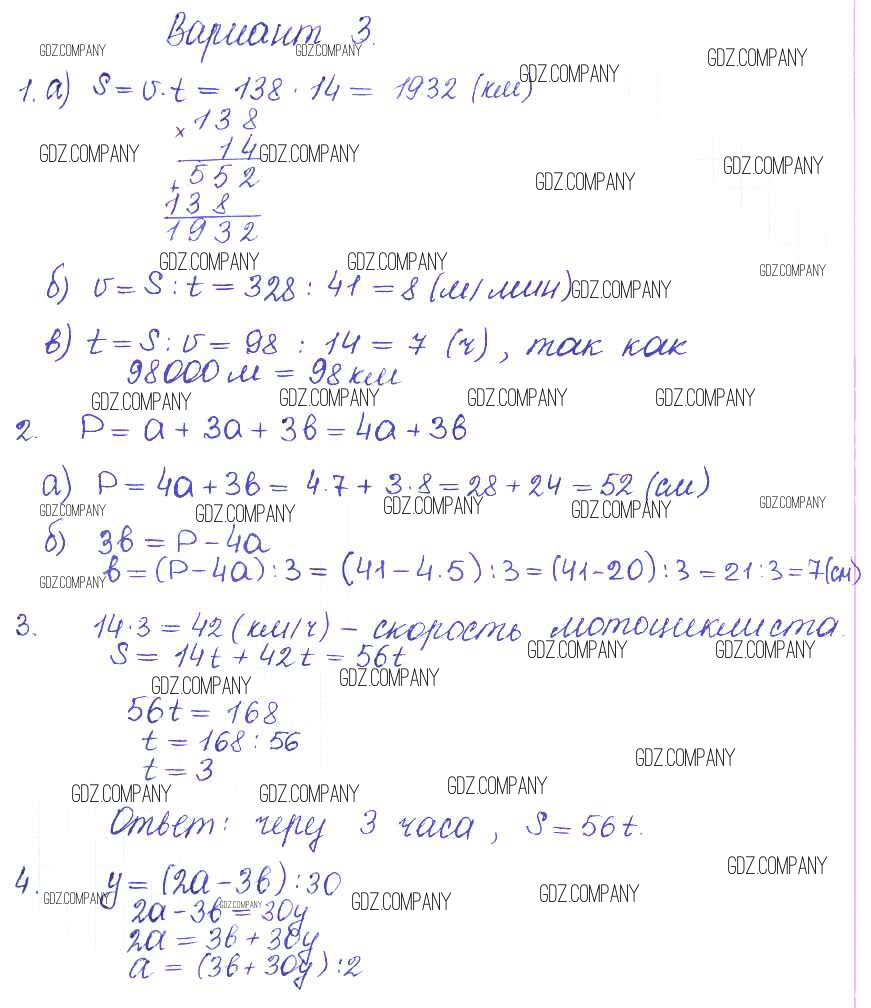 Вариант 3.
GDZ.COMPANY GDZ.COMPANY GDZ.COMPANY
1. а) S = υ·t = 138 · 14 = 1932 (км) GDZ.COMPANY
× 138
GDZ.COMPANY 14 GDZ.COMPANY GDZ.COMPANY
+ 552 GDZ.COMPANY
138
1932
GDZ.COMPANY GDZ.COMPANY GDZ.COMPANY
б) υ = S : t = 328 : 41 = 8 (м/мин) GDZ.COMPANY
в) t = S : υ = 98 : 14 = 7 (ч), так как
98000 м = 98 км
GDZ.COMPANY GDZ.COMPANY GDZ.COMPANY GDZ.COMPANY
2. P = a + 3a + 3в = 4a + 3в
а) P = 4a + 3в = 4·7 + 3·8 = 28 + 24 = 52 (см)
GDZ.COMPANY GDZ.COMPANY GDZ.COMPANY GDZ.COMPANY GDZ.COMPANY
б) 3в = P - 4a
GDZ.COMPANY в = (P - 4a) : 3 = (41 - 4·5) : 3 = (41-20) : 3 = 21 : 3 = 7 (см)
3. 14·3 = 42 (км/ч) - скорость мотоциклиста.
S = 14t + 42t = 56t GDZ.COMPANY GDZ.COMPANY
GDZ.COMPANY GDZ.COMPANY
56t = 168
t = 168 : 56
t = 3 GDZ.COMPANY
GDZ.COMPANY GDZ.COMPANY GDZ.COMPANY
Ответ: через 3 часа, S = 56t.
GDZ.COMPANY
4. y = (2a - 3в) : 30
GDZ.COMPANY GDZ.COMPANY GDZ.COMPANY GDZ.COMPANY
2a - 3в = 30y
2a = 3в + 30y
a = (3в + 30y) : 2